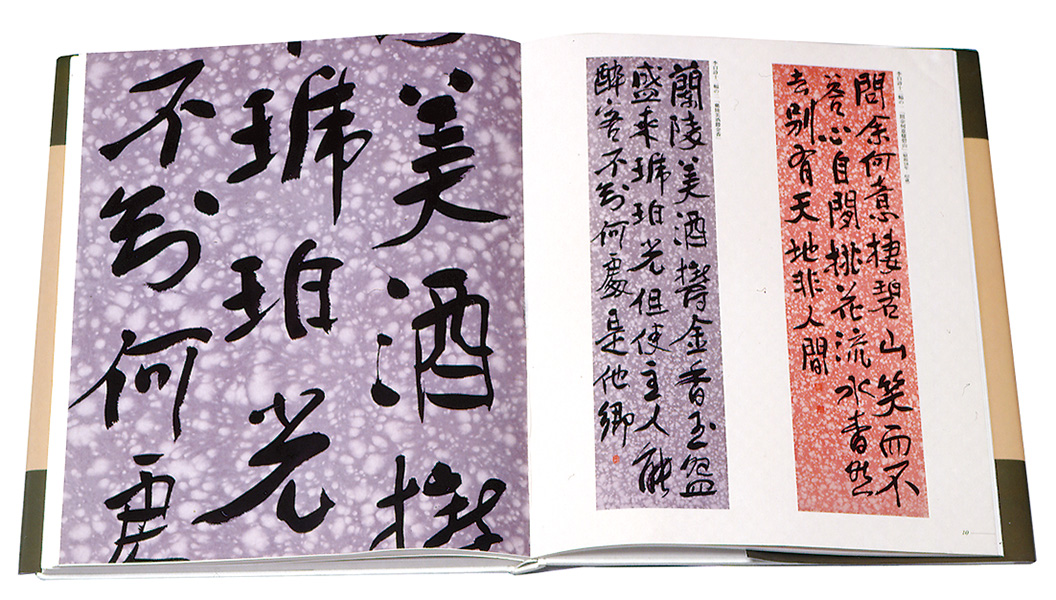 問余何意棲碧山笑而不
答心自閑桃花流水杳然
去別有天地非人間
蘭陵美酒欝金香玉盌
盛来琥珀光但使主人能
醉客不知何處是他郷
10
美酒欝
琥珀光
不知何處